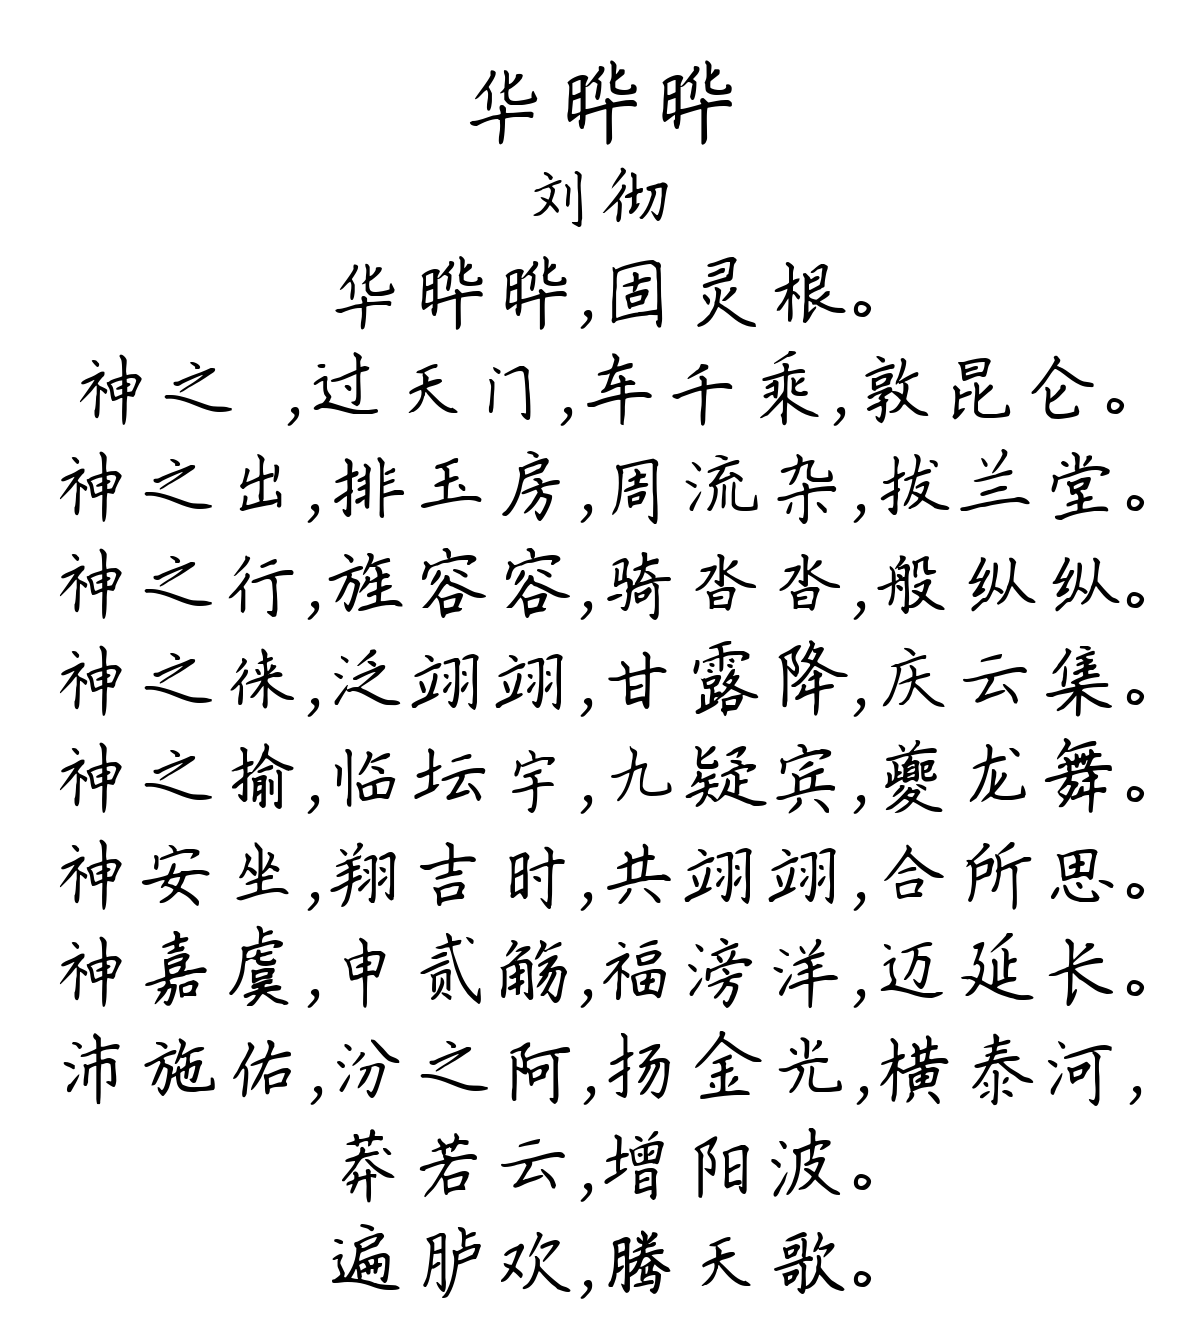 华晔晔
刘彻
华晔晔,固灵根。
神之 ,过天门,车千乘,敦昆仑。
神之出,排玉房,周流杂,拔兰堂。
神之行,旌容容,骑沓沓,般纵纵。
神之徕,泛翊翊,甘露降,庆云集。
神之揄,临坛宇,九疑宾,夔龙舞。
神安坐,翔吉时,共翊翊,合所思。
神嘉虞,申贰觞,福滂洋,迈延长。
沛施佑,汾之阿,扬金光,横泰河,
莽若云,增阳波。
遍胪欢,腾天歌。